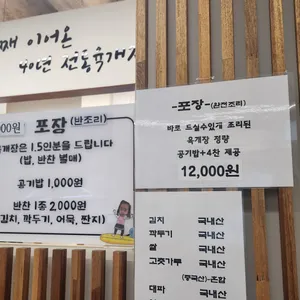 째 이어온
40년 전통육개장
000원 포장(반조리)
개장은 1.5인분을 드립니다
(밥, 반찬 별매)
공기밥 1,000원
반찬 1종 2,000원
(김치, 깍두기, 어묵, 짠지)
-포장-(완전조리)
바로 드실수있게 조리된
육개장 정량
공기밥+4찬 제공
12,000원
김치 국내산
깍두기 국내산
쌀 국내산
고춧가루 국내산
(중국산)-조합
대파 국내산